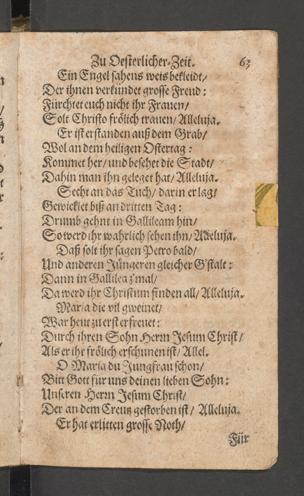 Zu Oesterlicher Zeit. 63
Ein Engel sahens weis bekleidt/
Der ihnen verkundet grosse Freud:
Fürchtet euch nicht ihr Frauen/
Solt Christo frölich trauen/ Alleluja.
Er ist erstanden auß dem Grab/
Wol an dem heiligen Ostertag:
Kommet her/ und besehet die Stadt/
Dahin man ihn geleget hat/ Alleluja.
Secht an das Tuch/ darin er lag/
Gewicklet biß an dritten Tag:
Drumb gehnt in Gallileam hin/
So werd ihr wahrlich sehen ihn/ Alleluja.
Daß solt ihr sagen Petro bald/
Und anderen Jüngeren gleicher G'stalt:
Dann in Gallilea z'mal/
Da werd ihr Christum finden all/ Alleluja.
Maria die vil gweinet/
War heut zu erst erfreuet:
Durch ihren Sohn Herrn Jesum Christ/
Als er ihr frölich erschunen ist/ Allel.
O Maria du Jungfrau schon/
Bitt Gott für uns deinen lieben Sohn:
Unseren Herrn Jesum Christ/
Der an dem Creutz gestorben ist/ Alleluja.
Er hat erlitten grosse Noth/
Für